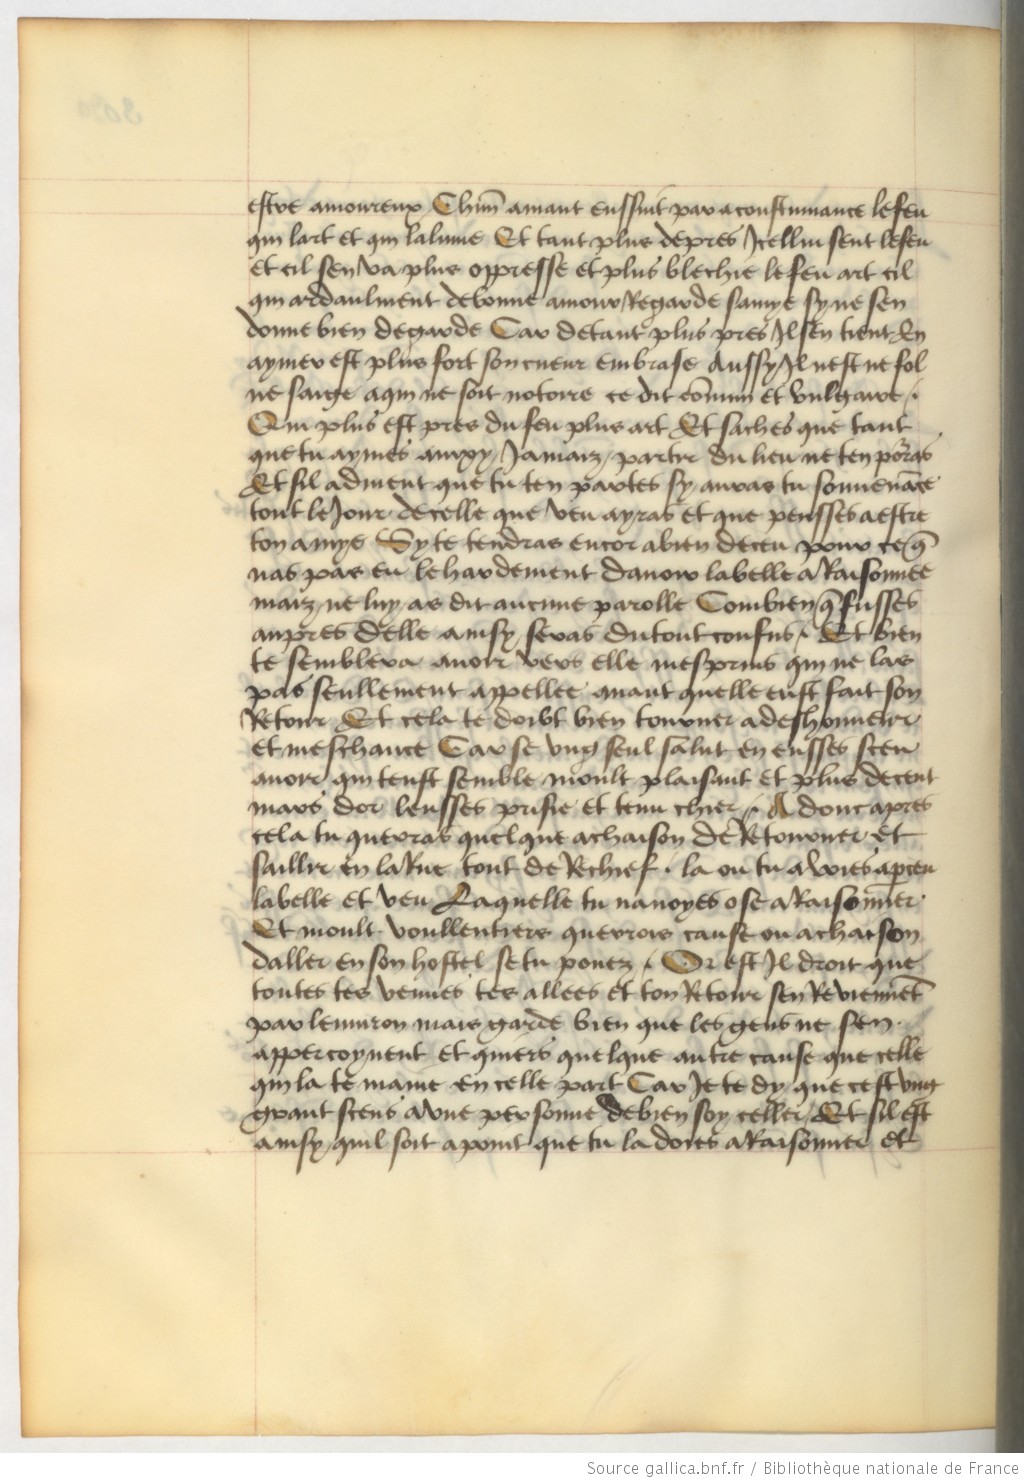 estre amoureux Chūn amant enssuit par acoustumance le feu
qui lart et qui lalume Et tant plus de pres Icelluy sent le feu
et cil sen va plus oppresse et plus blechie le feu art cil
qui ardaulment de bonne amour Regarde samye sy ne sen
donne bien de garde Car de tant plus pres Il sen tient En
aymer est plus fort son cueur embrase Aussy Il nest ne fol
ne saige aqui ne soit notoire ce dit cōmun et vulgaire .
Qui plus est pres du feu plus art Et saches que tant
que tu aymes ainxy Jamaiz partir du lieu ne ten porras
Et sil aduient que tu ten partes sy auras tu souuenāce
tout le Jour de celle que veu ayras et que pensses a estre
ton amye Sy te tendras encor a bien deceu pour ce q̄
nas pas eu le hardement dauoir la belle a Raisonnee
maiz ne luy as dit aucune parolle Combien q̄ fusses
aupres delle ainsy seras du tout confus . Et bien
te semblera auoir vers elle mesprins qui ne las
pas seullement appellee auant quelle eust fait son
Retour Et cela te doibt bien tourner a deshonneur
et meschance Car se vng seul salut en eusses sceu
auoir qui teust semble moult plaisant et plus decent
mars dor leusses prisie et tenu chier . A donc apres
cela tu querras quelque achaison de Retourner et
saillir en la Rue tout de Rechief . la ou tu avoies apceu
la belle et veu Laquelle tu nauoyes ose a Raisonner
Et moult voullentiers querrois cause ou achaison
daller en son hostel se tu pouez . Or est Il droit que
toutes tes venues tes allees et ton Retour sen Reuiennēt
par lenuiron mais garde bien que les gens ne sen
appercoyuent et quiers quelque autre cause que celle
qui la te maine en celle part Car Je te dy que cest vng
grant scens a vne personne de bien soy celler Et sil est
ainsy quil soit apoint que tu la doies a Raisonner et
Source gallica.bnf.fr / Bibliothèque nationale de France